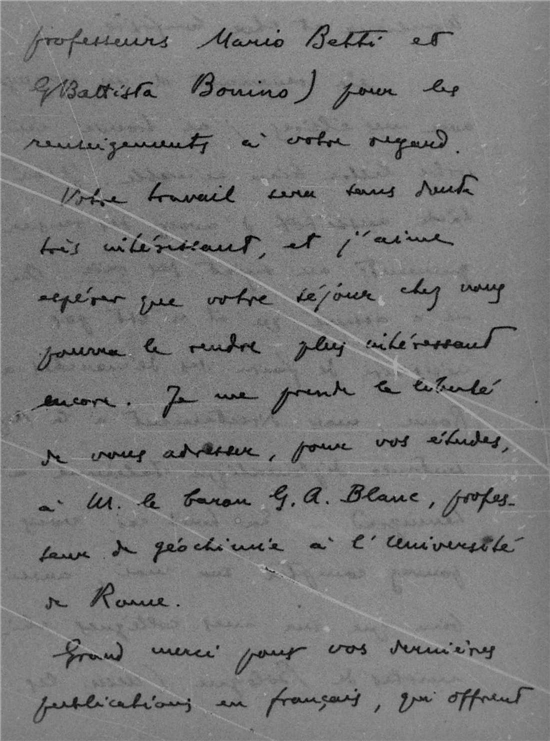 professeurs Mario Betti et
GBattista Bonino) pour les
renseignements à votre regard.
Votre travail sera sans doute
très intéressant, et j'aime
espérer que votre séjour chez nous
pourra le rendre plus intéressant
encore. Je me prends la liberté
de vous adresser, pour vos études,
à M. le baron G. A. Blanc, profes-
seur de géochimie à l'Université
de Rome.
Grand merci pour vos dernières
publications en français, qui offrent